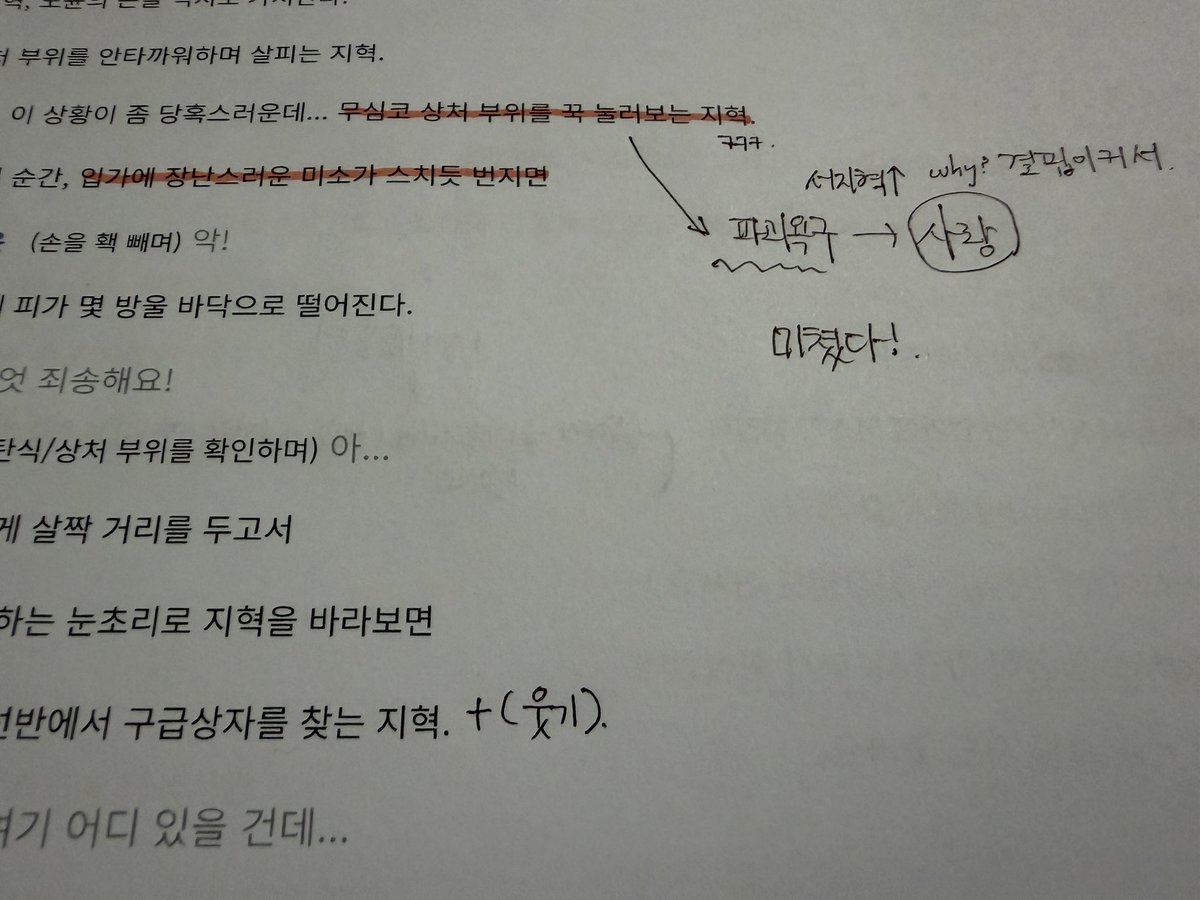 부위를 안타까워하며 살피는 지혁.
이 상황이 좀 당혹스러운데... 무심코 상처 부위를 꾹 눌러보는 지혁.
ㄱㄱㄱ.
순간, 입가에 장난스러운 미소가 스치듯 번지면
서지혁↑ why? 결핍이 커서.
파괴욕구 → 사랑
(손을 홱 빼며) 악!
피가 몇 방울 바닥으로 떨어진다.
미쳤다!.
엇 죄송해요!
탄식/상처 부위를 확인하며) 아...
게 살짝 거리를 두고서
하는 눈초리로 지혁을 바라보면
선반에서 구급상자를 찾는 지혁. + (웃기).
여기 어디 있을 건데...